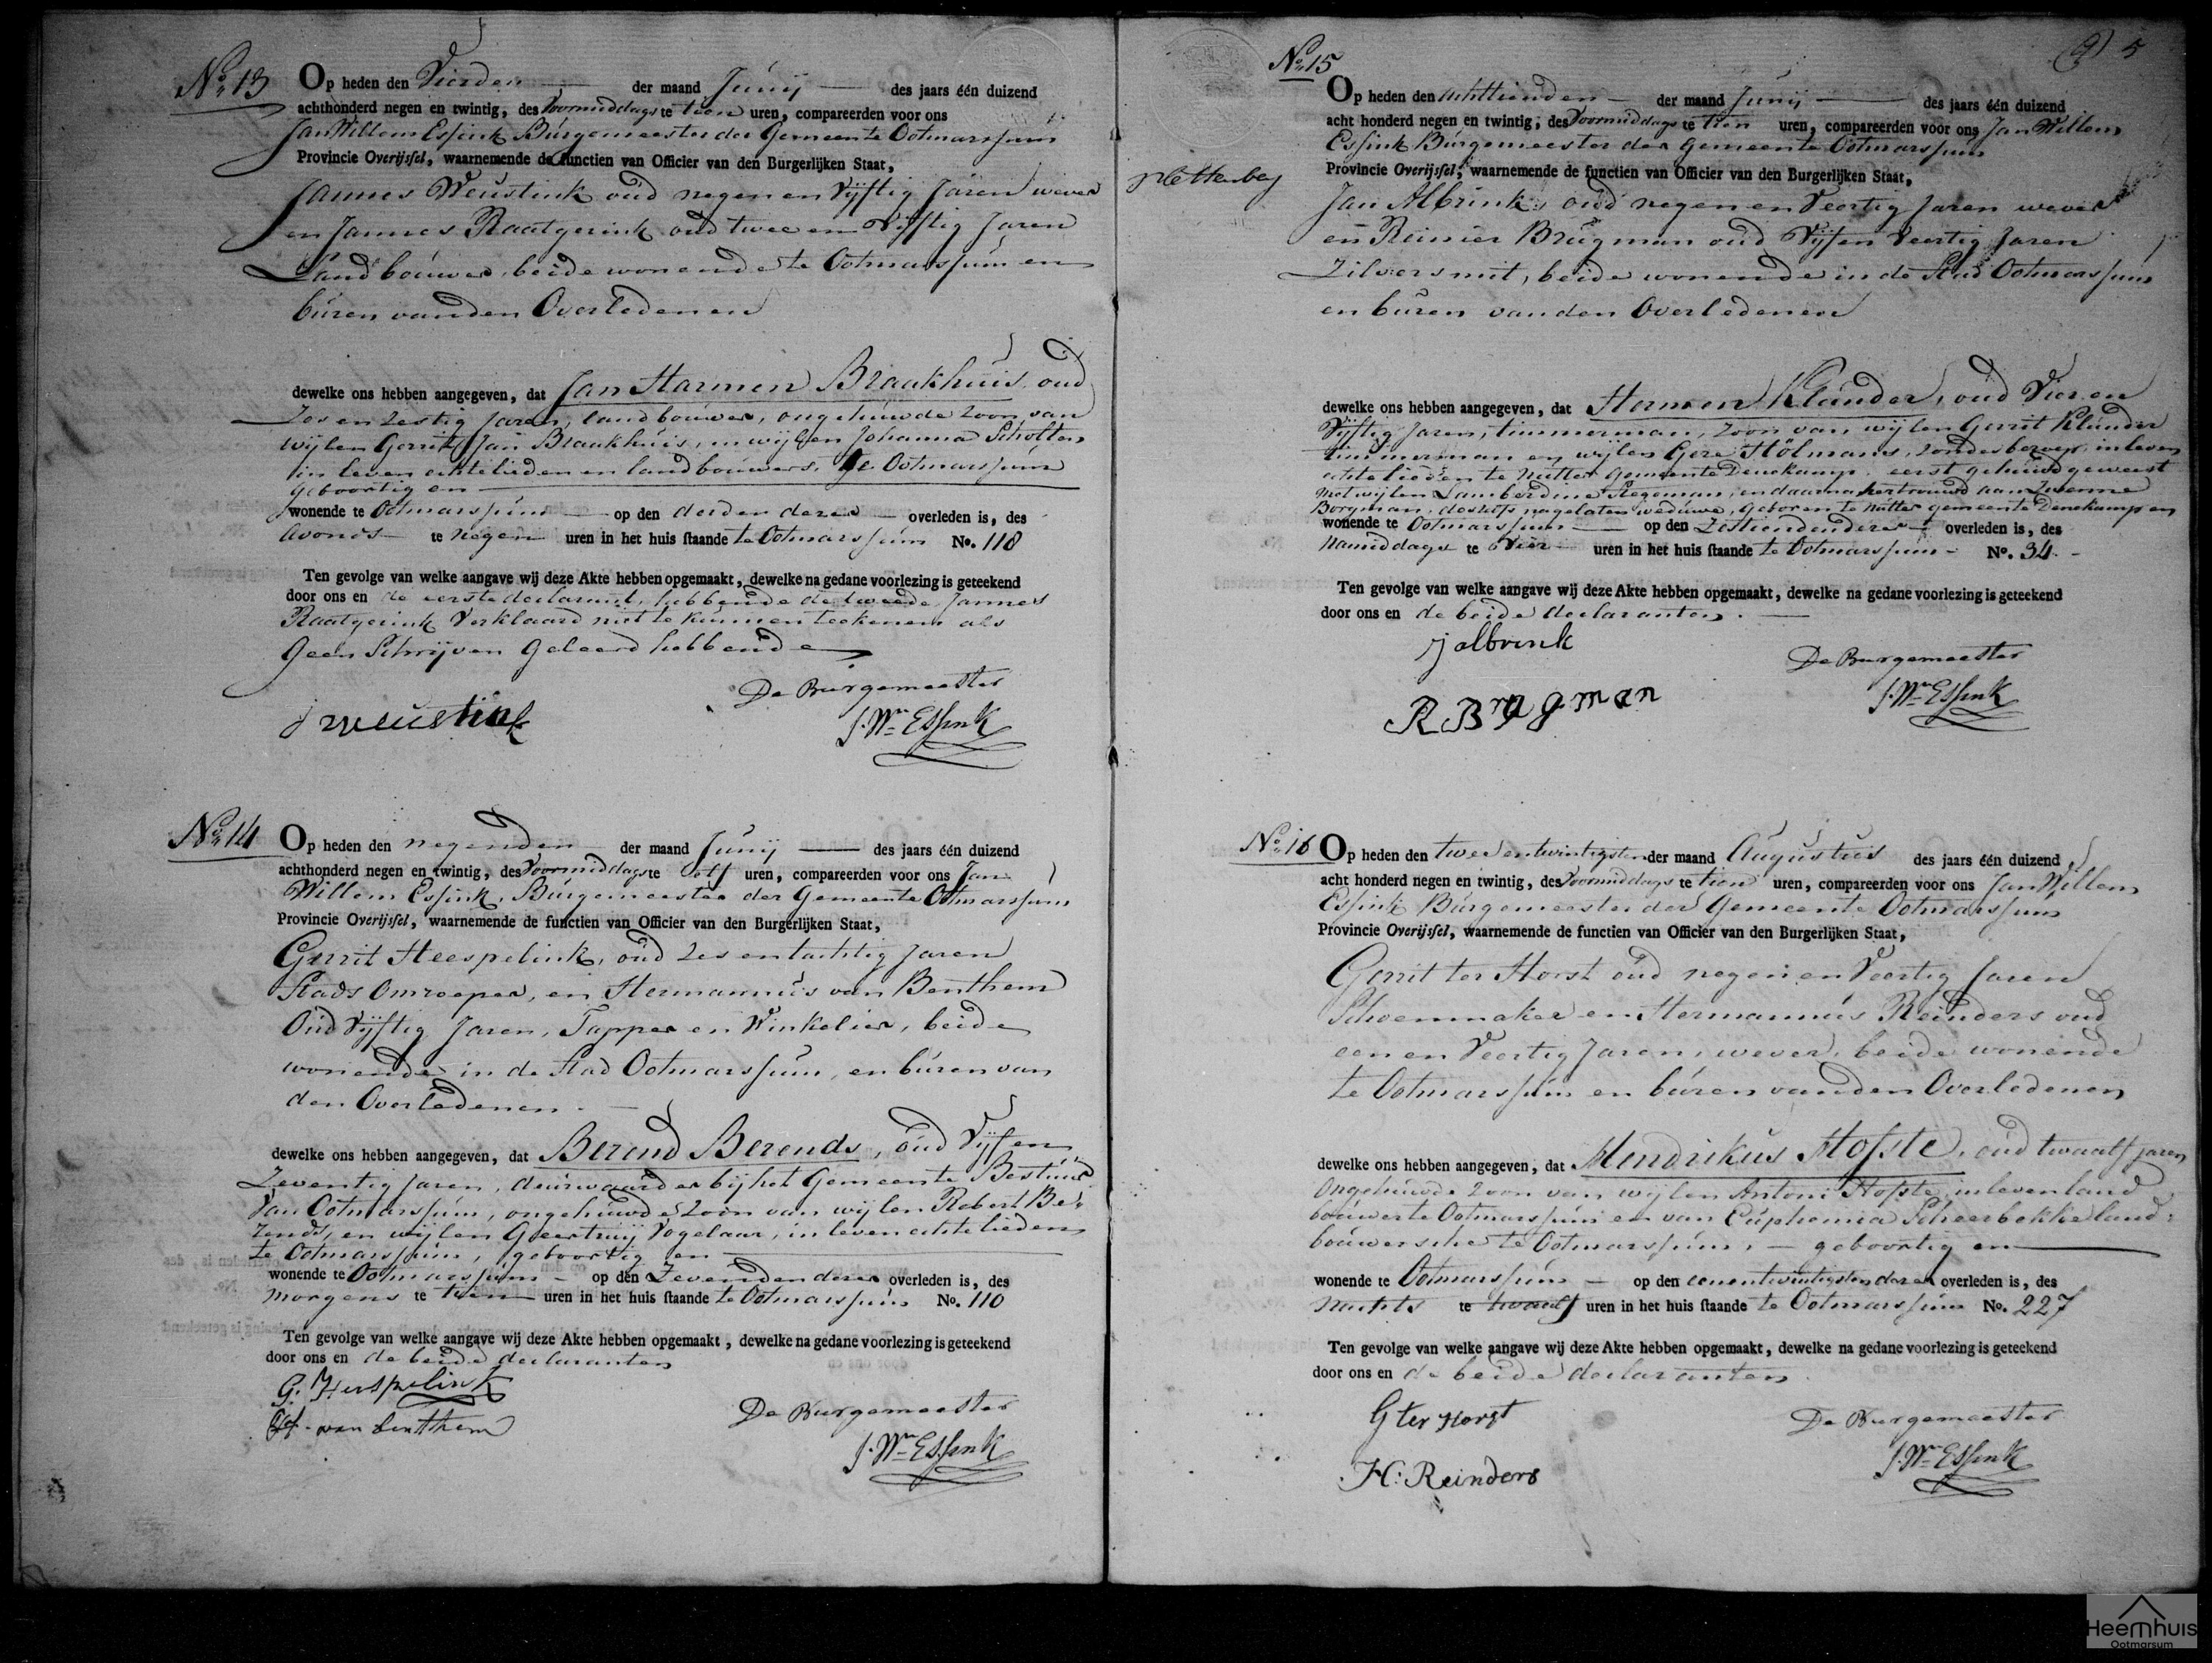 No. 13
Op heden den Vierden der maand Junij des jaars één duizend
achthonderd negen en twintig, des Voormiddags te tien uren, compareerden voor ons
Jan Willem Essink Burgemeester der Gemeente Ootmarssum
Provincie Overijssel, waarnemende de functien van Officier van den Burgerlijken Staat,
Jannes Weustink oud negen en Vijftig Jaren wever
en Jannes Raatgerink oud twee en Vijftig Jaren
Landbouwer, beide wonende te Ootmarssum en
buren van den Overledenen
dewelke ons hebben aangegeven, dat Jan Harmen Braakhuis oud
Zes en Zestig Jaren, landbouwer, ongehuwde Zoon van
wijlen Gerrit Jan Braakhuis, en wijlen Johanna Scholten
in leven echtelieden en landbouwers te Ootmarssum
geboortig en
wonende te Ootmarssum op den derden dezer overleden is, des
Avonds te negen uren in het huis staande te Ootmarssum No. 118
Ten gevolge van welke aangave wij deze Akte hebben opgemaakt, dewelke na gedane voorlezing is geteekend
door ons en de eerste declarant, hebbende de tweede Jannes
Raatgerink Verklaard niet te kunnen teekenen als
Geen Schrijven Geleerd hebbende
De Burgemeester
J weustink
J. Wm Essink
No. 14
Op heden den negenden der maand Junij des jaars één duizend
achthonderd negen en twintig, des Voormiddags te elf uren, compareerden voor ons Jan
Willem Essink, Burgemeester der Gemeente Ootmarssum
Provincie Overijssel, waarnemende de functien van Officier van den Burgerlijken Staat,
Gerrit Heespelink, oud Zes en tachtig Jaren
Stads Omroeper, en Hermannus van Benthem
Oud Vijftig Jaren, Tapper en Winkelier, beide
wonende in de Stad Ootmarssum, en buren van
den Overledenen.
dewelke ons hebben aangegeven, dat Berend Berends, oud Vijf en
Zeventig Jaren, deurwaarder bij het Gemeente Bestuur
Van Ootmarssum, ongehuwde Zoon van wijlen Robert Be-
rends, en wijlen Geertruij Vogelaar, in leven echtelieden
te Ootmarssum, geboortig en
wonende te Ootmarssum op den Zevenden dezer overleden is, des
morgens te tien uren in het huis staande te Ootmarssum No. 110
Ten gevolge van welke aangave wij deze Akte hebben opgemaakt, dewelke na gedane voorlezing is geteekend
door ons en de beide declaranten
G. Hespelink
van benthem
De Burgemeester
J. Wm Essink
5
No. 15
Op heden den achttienden der maand Junij des jaars één duizend
acht honderd negen en twintig, des Voormiddags te tien uren, compareerden voor ons Jan Willem
Essink Burgemeester der Gemeente Ootmarssum
Provincie Overijssel, waarnemende de functien van Officier van den Burgerlijken Staat,
Jan Albrink, oud negen en Veertig Jaren wever
en Reinier Brugman oud Vijf en Veertig Jaren
Zilversmit, beide wonende in de Stad Ootmarssum
en buren van den Overledenen
dewelke ons hebben aangegeven, dat Harmen Klunder, oud Vier en
Vijftig Jaren, timmerman, Zoon van wijlen Gerrit Klunder
timmerman en wijlen Gese Hölmans, Zonder beroep, in leven
echtelieden te Nutter Gemeente Denekamp, eerst gehuwd geweest
met wijlen Lamberdina Stegeman, en daarna hertrouwd aan Zwenne
Borgman, deszelfs nagelaten weduwe, geboren te Nutter gemeente Denekamp en
wonende te Ootmarssum op den Zestienden dezer overleden is, des
Namiddags te Vier uren in het huis staande te Ootmarssum No. 34.
Ten gevolge van welke aangave wij deze Akte hebben opgemaakt, dewelke na gedane voorlezing is geteekend
door ons en de beide declaranten.
j albrink
R Brugman
De Burgemeester
J. Wm Essink
No. 16
Op heden den twee en twintigsten der maand Augustus des jaars één duizend
acht honderd negen en twintig, des Voormiddags te tien uren, compareerden voor ons Jan Willem
Essink Burgemeester der Gemeente Ootmarssum
Provincie Overijssel, waarnemende de functien van Officier van den Burgerlijken Staat,
Gerrit ter Horst oud negen en Veertig Jaren
Schoenmaker en Hermannus Reinders oud
een en Veertig Jaren, wever, beide wonende
te Ootmarssum en buren van den Overledenen
dewelke ons hebben aangegeven, dat Hendrikus Hofste, oud twaalf jaren
Ongehuwde Zoon van wijlen Antoni Hofste, in leven land
bouwer te Ootmarssum en van Euphemia Scheerbekke land:
bouwersche te Ootmarssum, geboortig en
wonende te Ootmarssum op den eenentwintigsten dezer overleden is, des
Nachts te twaalf uren in het huis staande te Ootmarssum No. 227
Ten gevolge van welke aangave wij deze Akte hebben opgemaakt, dewelke na gedane voorlezing is geteekend
door ons en de beide declaranten
G ter Horst
H: Reinders
De Burgemeester
J. Wm Essink
Heemhuis
Ootmarsum